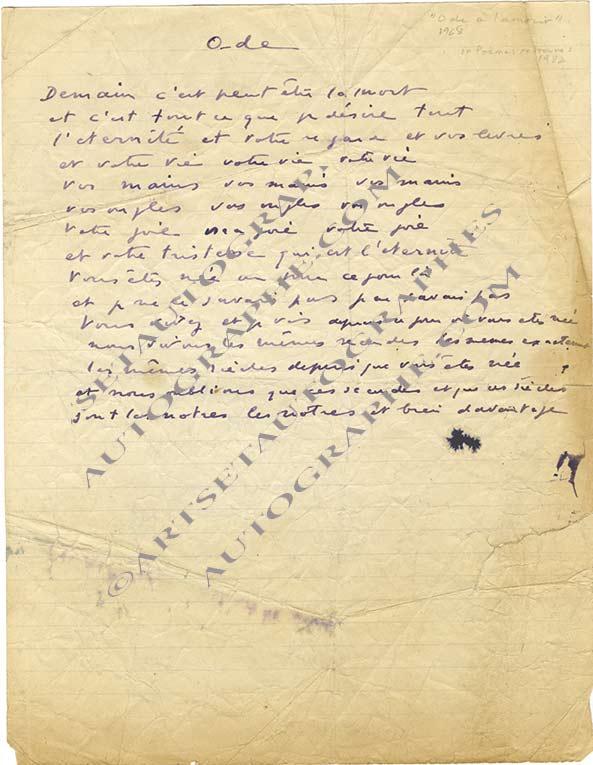 "Ode à l'amour"
1968
in Poèmes retrouvés
1982
Ode
Demain c'est peut être la mort
et c'est tout ce que je désire tout
l'eternité et votre regard et vos levres
et votre vie votre vie votre vie
vos mains vos mains vos mains
vos ongles vos ongles vos ongles
votre joie ma joie votre joie
et votre tristesse qui est l'eternité
Vous êtes née un jour ce jour là
et je ne le savais pas je ne savais pas
Vous vivez et je vis depuis le jour où vous êtes née
nous vivons les mêmes secondes les mêmes exactement
les mêmes siècles depuis que vous êtes née
et nous oublions que ces secondes et que ces siècles
sont les notres les notres et bien davantage
©ARTSETAUTOGRAPHES.COM
AUTOGRAPHE.COM